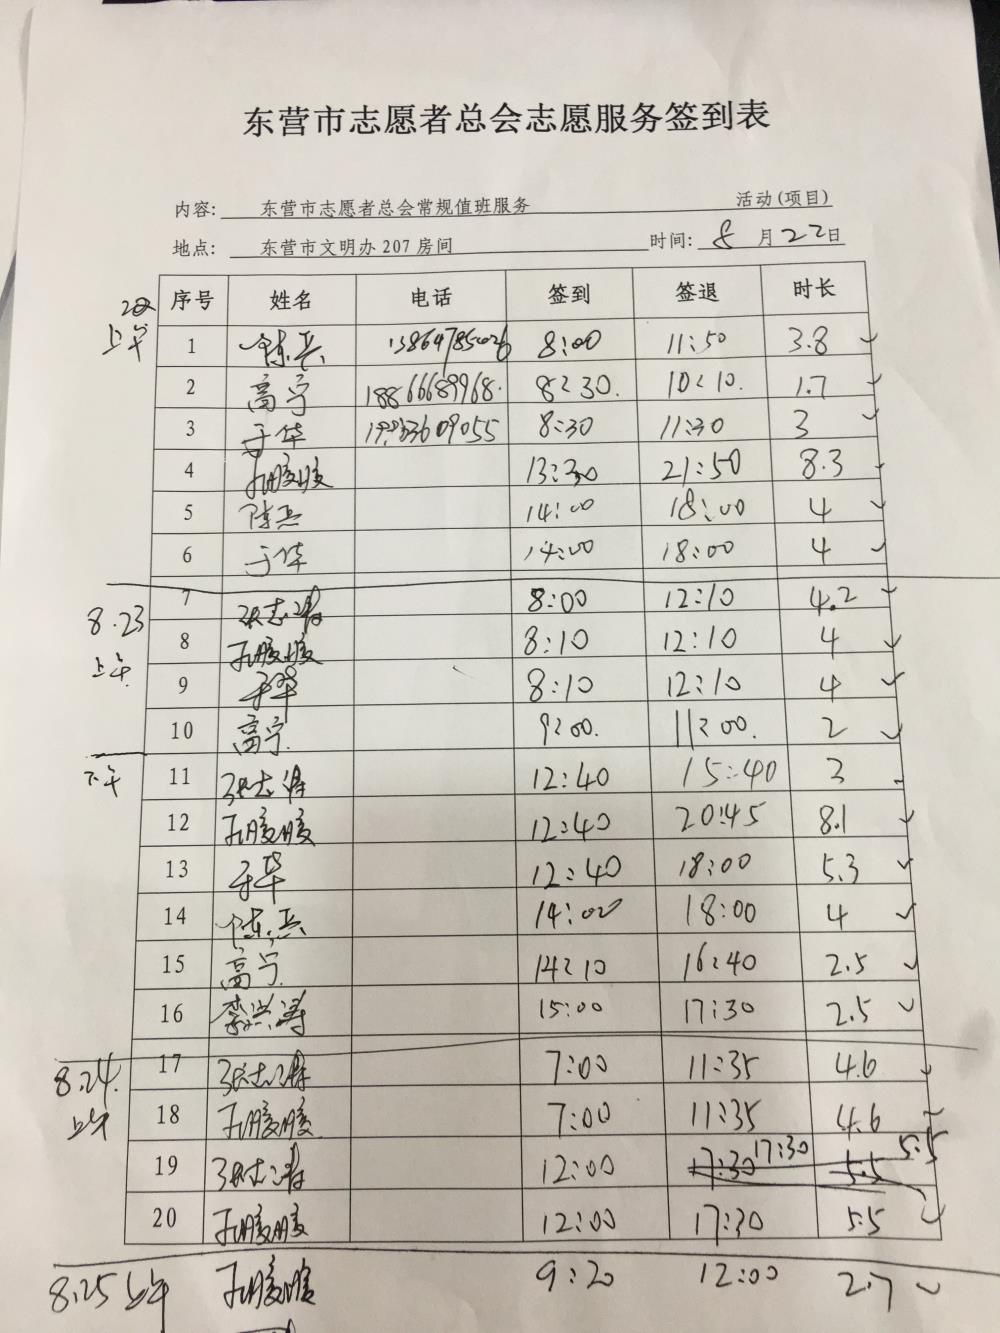 东营市志愿者总会志愿服务签到表
内容: 东营市志愿者总会常规值班服务 活动(项目)
地点: 东营市文明办 207 房间 时间: 8 月 22 日
序号 姓名 电话 签到 签退 时长
上午
1 陈兵 8:00 11:50 3.8
2 高宁 18866689968. 8:30. 10:10. 1.7
3 于华 8:30 11:30 3
4 孔胶胶 13:30 21:50 8.3
5 陈兵 14:00 18:00 4
6 于华 14:00 18:00 4
8.23
上午
7 张志涛 8:00 12:10 4.2
8 孔胶胶 8:10 12:10 4
9 于华 8:10 12:10 4
10 高宁. 9:00. 11:00. 2
下午
11 张志涛 12:40 15:40 3
12 孔胶胶 12:40 20:45 8.1
13 于华 12:40 18:00 5.3
14 陈兵 14:00 18:00 4
15 高宁. 14:10 16:40 2.5
16 李兴涛 15:00 17:30 2.5
8.24.
上午
17 张志涛 7:00 11:35 4.6
18 孔胶胶 7:00 11:35 4.6
19 张志涛 12:00 17:30 17:30 5.5 5.5
20 孔胶胶 12:00 17:30 5.5
8.25 上午 孔胶胶 9:20 12:00 2.7